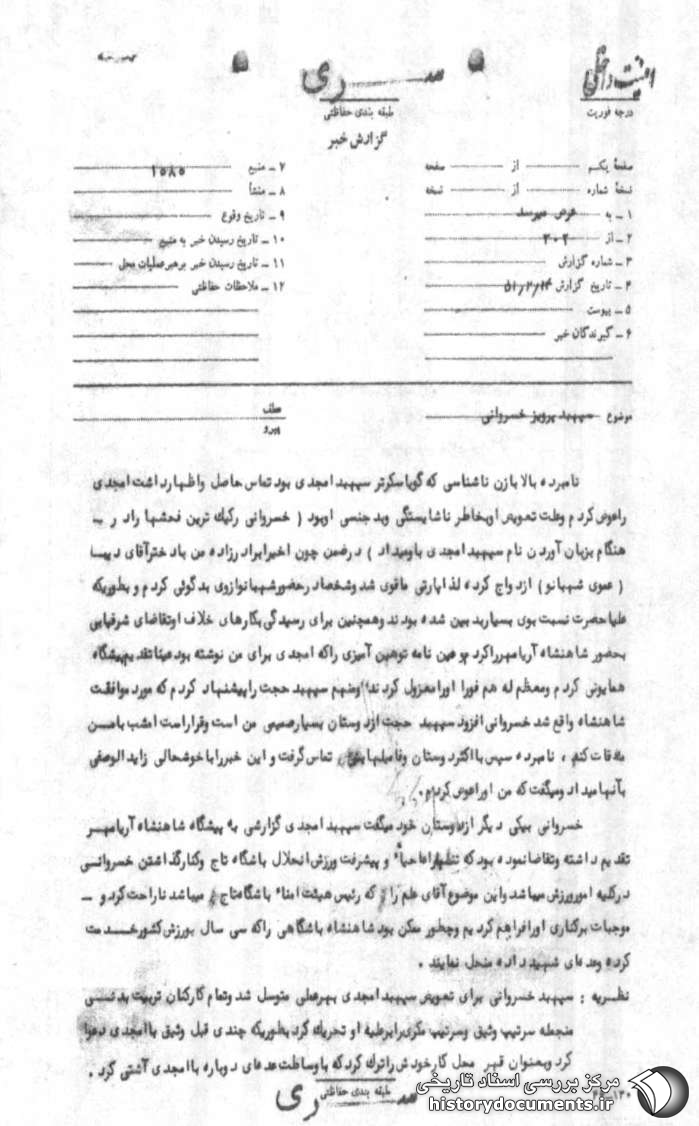 امنیت داخلی
درجه فوریت
سری
طبقه بندی حفاظتی
گزارش خبر
صفحهٔ یکم از صفحه
نسخهٔ شماره از نسخه
۱ ـ به عرض میرسد
۲ ـ از ۲۰۲
۳ ـ شماره گزارش
۴ ـ تاریخ گزارش ۵۱/۲/۱۴
۵ ـ پیوست
۶ ـ گیرندگان خبر
۷ ـ منبع ۱۰۸۵
۸ ـ منشأ
۹ ـ تاریخ وقوع
۱۰ ـ تاریخ رسیدن خبر به منبع
۱۱ ـ تاریخ رسیدن خبر برهبر عملیات محل
۱۲ ـ ملاحظات حفاظتی
موضوع سپهبد پرویز خسروانی
عطف
پیرو
نامبرده بالا با زن ناشناسی که گویا سکرتر سپهبد امجدی بود تماس حاصل و اظهار داشت امجدی
را عوض کردم و علت تعویض او بخاطر ناشایستگی و بد جنسی او بود ( خسروانی رکیک ترین فحشها را در ـ
هنگام بزبان آوردن نام سپهبد امجدی باو میداد ) در ضمن چون اخیرا برادرزاده من با دختر آقای دیبا
( عموی شهبانو ) ازدواج کرده لذا پارتی ما قوی شد و شخصا در حضور شهبانو از وی بدگوئی کردم و بطوریکه
علیاحضرت نسبت بوی بسیار بد بین شده بودند و همچنین برای رسیدگی بکارهای خلاف او تقاضای شرفیابی
بحضور شاهنشاه آریامهر را کردم و عین نامه توهین آمیزی را که امجدی برای من نوشته بود عینا تقدیم پیشگاه
همایونی کردم و معظم له هم فورا او را معزول کردند و منهم سپهبد حجت را پیشنهاد کردم که مورد موافقت
شاهنشاه واقع شد خسروانی افزود سپهبد حجت از دوستان بسیار صمیمی من است و قرار است امشب با من
ملاقات کند ، نامبرده سپس با اکثر دوستان و فامیلهایش تماس گرفت و این خبر را با خوشحالی زاید الوصفی
بآنها میداد و میگفت که من او را عوض کردم .
خسروانی بیکی دیگر از دوستان خود میگفت سپهبد امجدی گزارشی به پیشگاه شاهنشاه آریامهر
تقدیم داشته و تقاضا نموده بود که تنها راه و پیشرفت ورزش انحلال باشگاه تاج و کنار گذاشتن خسروانی
در کلیه امور ورزش میباشد و این موضوع آقای علم را که رئیس هیئت امناء باشگاه تاج میباشد ناراحت کرد و ـ
موجبات برکناری او را فراهم کردیم و چطور ممکن بود شاهنشاه باشگاهی را که سی سال بورزش کشور خدمت
کرده و عده‌ای شهید داده منحل نمایند .
نظریه : سپهبد خسروانی برای تعویض سپهبد امجدی بهر عملی متوسل شد و تمام کارکنان تربیت بدنی
منجمله سرتیپ وثیق و سرتیپ مکری را بر علیه او تحریک کرد بطوریکه چندی قبل وثیق با امجدی دعوا
کرد و بعنوان قهر محل کار خودش را ترک کرد که با وساطت عده‌ای دوباره با امجدی آشتی کرد .
طبقه بندی حفاظتی
سری
مرکز بررسی اسناد تاریخی
historydocuments.ir